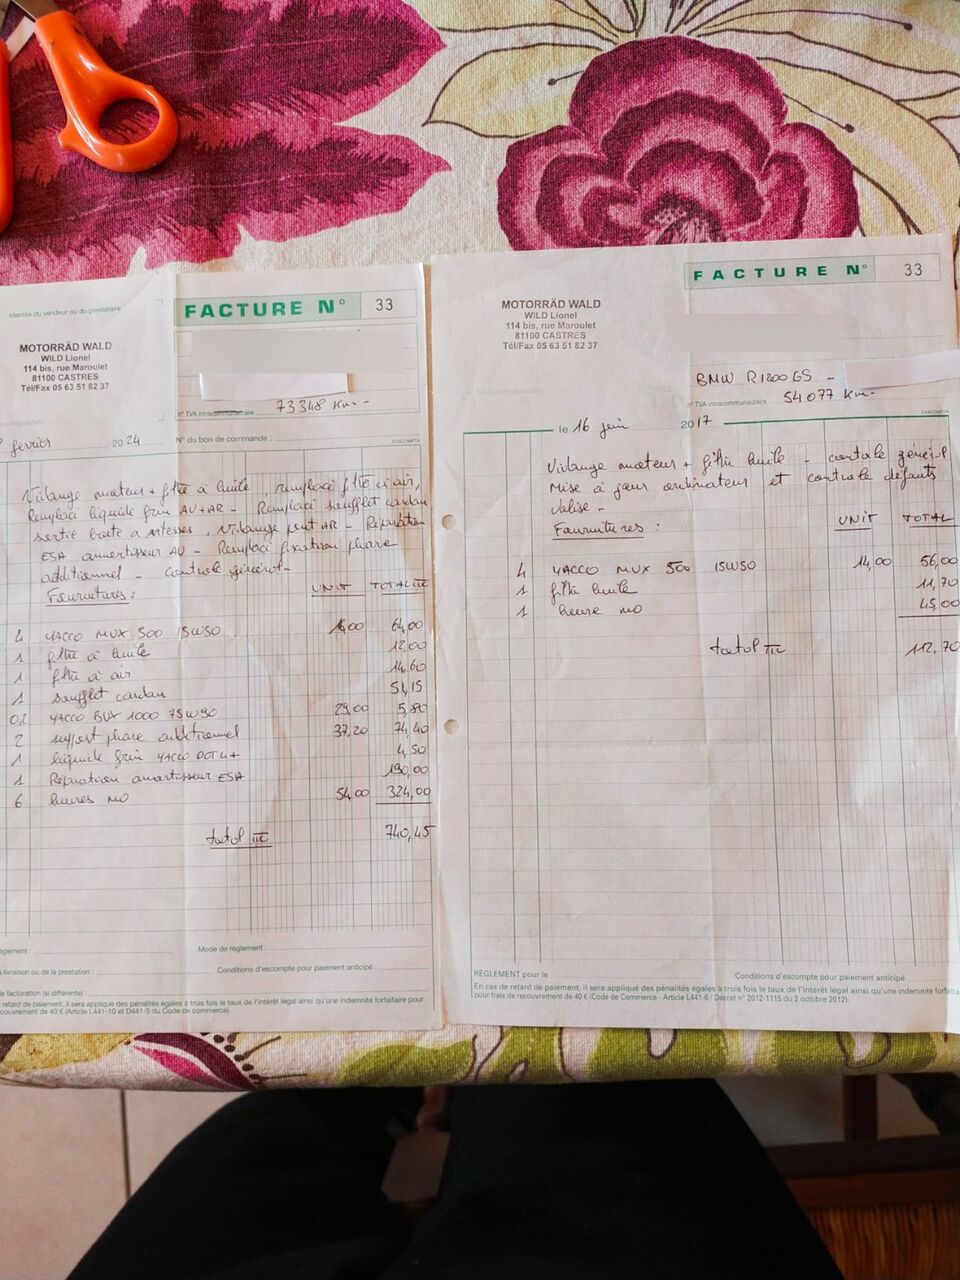 Identité du vendeur ou du prestataire
FACTURE N° 33
MOTORRÄD WALD
WILD Lionel
114 bis, rue Maroulet
81100 CASTRES
Tél/Fax 05 63 51 82 37
n° TVA intracommunautaire
73348 Km -
fevrier 2024
N° du bon de commande :
EXACOMPTA
Vidange moteur + filtre à huile, remplacé filtre à air,
Remplacé liquide frein AV+AR - Remplacé soufflet cardan
sortie boite a vitesses, Vidange pont AR - Réparation
ESA amortisseur AV - Remplacé fixation phare
additionnel - controle général -
Fournitures : UNIT TOTAL
4 YACCO MVX 500 15W50 16,00 64,00
1 filtre à huile 12,00
1 filtre à air 14,60
1 soufflet cardan 51,15
0,2 YACCO BVX 1000 75W90 29,00 5,80
2 support phare additionnel 37,20 74,40
1 liquide frein YACCO DOT 4 4,50
1 Réparation amortisseur ESA 190,00
6 heures MO 54,00 324,00
total 740,45
Mode de règlement :
livraison ou de la prestation :
Conditions d'escompte pour paiement anticipé :
facturation (si différente) :
retard de paiement, il sera appliqué des pénalités égales à trois fois le taux de l'intérêt légal ainsi qu'une indemnité forfaitaire pour
couvrement de 40 € (Article L441-10 et D441-5 du Code de commerce).
FACTURE N° 33
MOTORRÄD WALD
WILD Lionel
114 bis, rue Maroulet
81100 CASTRES
Tél/Fax 05 63 51 82 37
BMW R1200GS -
n° TVA intracommunautaire
54077 Km -
le 16 juin 2017
EXACOMPTA
Vidange moteur + filtre huile - controle général
Mise à jour ordinateur et controle défauts
valise -
Fournitures : UNIT TOTAL
4 YACCO MVX 500 15W50 14,00 56,00
1 filtre huile 11,70
1 heure MO 45,00
total 112,70
RÈGLEMENT pour le
Conditions d'escompte pour paiement anticipé
En cas de retard de paiement, il sera appliqué des pénalités égales à trois fois le taux de l'intérêt légal ainsi qu'une indemnité
pour frais de recouvrement de 40 € (Code de Commerce - Article L441-6 / Décret n° 2012-1115 du 2 octobre 2012).